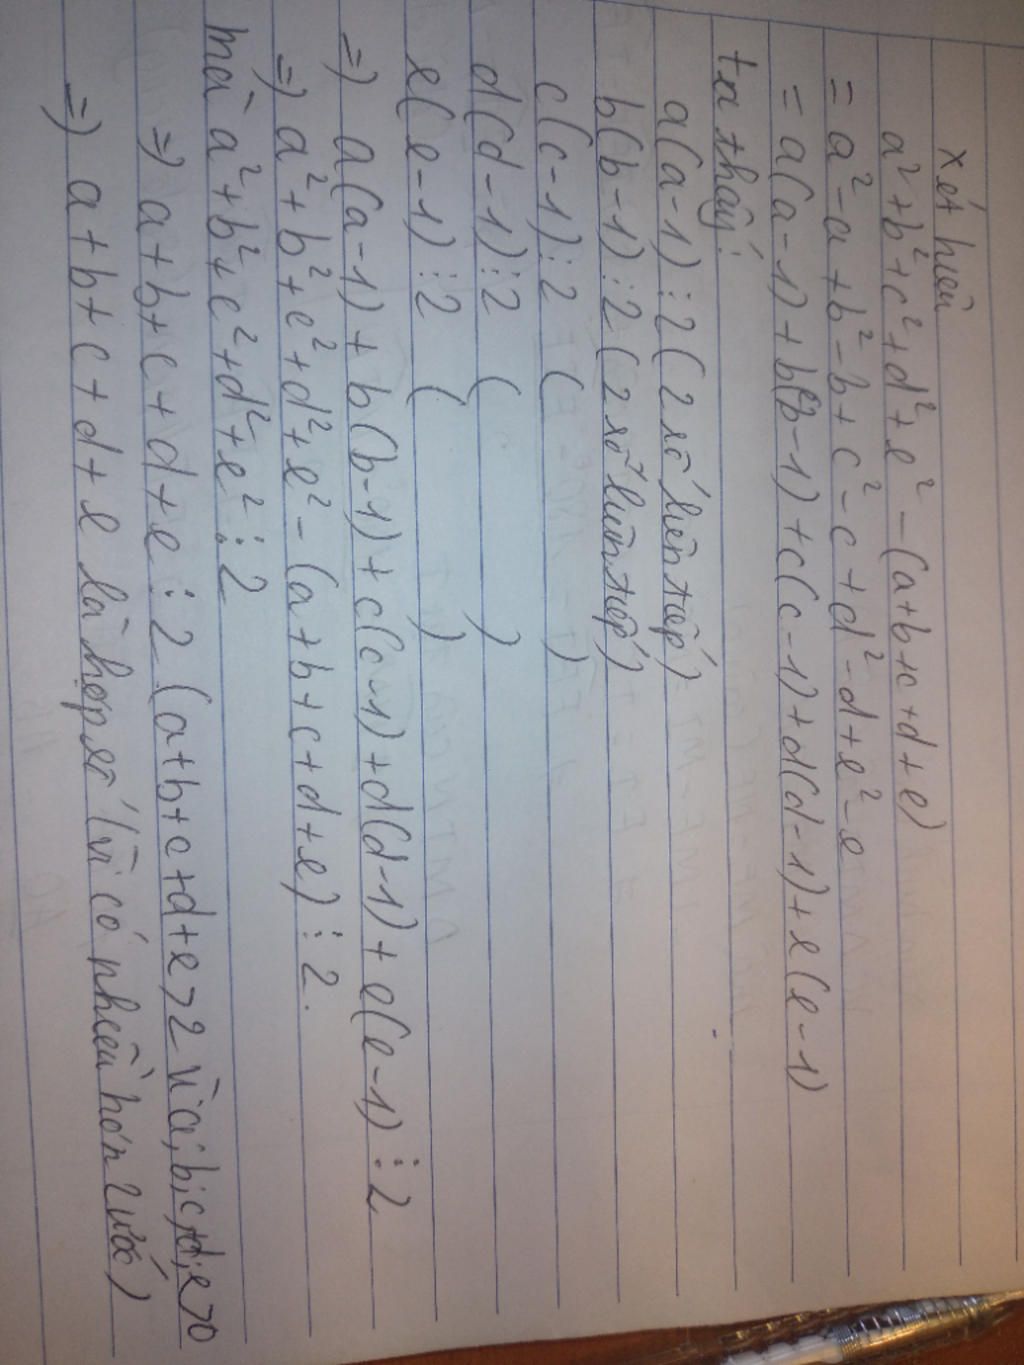 xét hiệu
a² + b² + c² + d² + e² - (a + b + c + d + e)
= a² - a + b² - b + c² - c + d² - d + e² - e
= a(a - 1) + b(b - 1) + c(c - 1) + d(d - 1) + e(e - 1)
ta thấy:
a(a - 1) ⋮ 2 ( 2 số liên tiếp )
b(b - 1) ⋮ 2 ( 2 số liên tiếp )
c(c - 1) ⋮ 2 ( - )
d(d - 1) ⋮ 2 ( )
e(e - 1) ⋮ 2 ( )
=) a(a - 1) + b(b - 1) + c(c - 1) + d(d - 1) + e(e - 1) ⋮ 2
=) a² + b² + c² + d² + e² - (a + b + c + d + e) ⋮ 2.
mà a² + b² + c² + d² + e² ⋮ 2
=) a + b + c + d + e ⋮ 2 (a + b + c + d + e > 2 vì a; b; c; d; e > 0
=) a + b + c + d + e là hợp số (vì có nhiều hơn 2 ước)